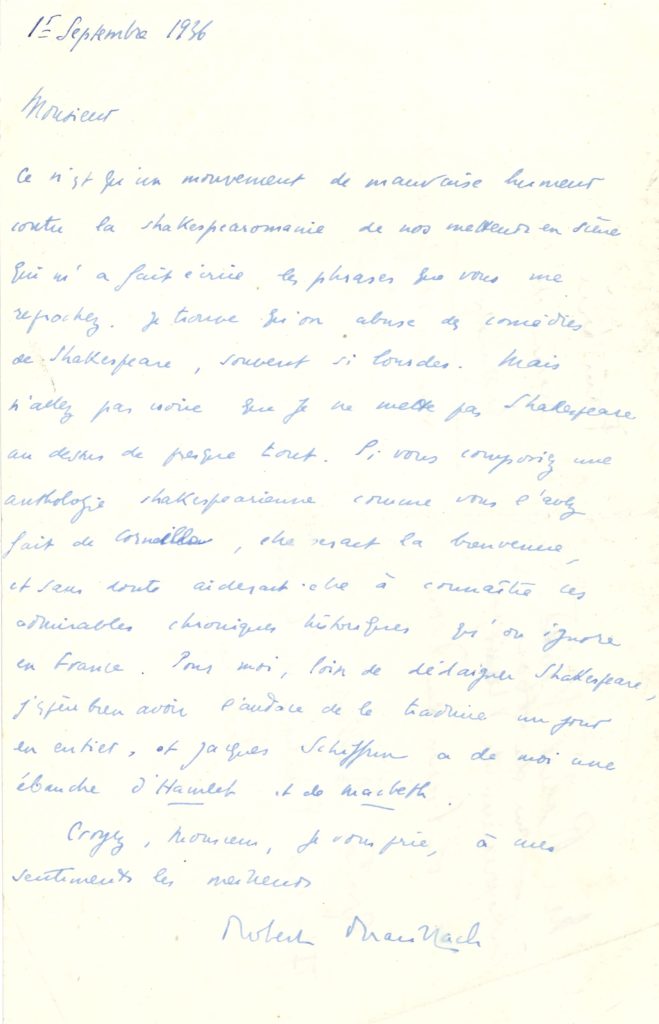 1er Septembre 1936
Monsieur
Ce n'est qu'un mouvement de mauvaise humeur
contre la shakespearomanie de nos metteurs en scène
qui m'a fait écrire les phrases que vous me
reprochez. Je trouve qu'on abuse des comédies
de Shakespeare, souvent si lourdes. Mais
n'allez pas croire que je ne mette pas Shakespeare
au dessus de presque tout. Si vous composiez une
anthologie shakespearienne comme vous l'avez
fait de Corneille, elle serait la bienvenue,
et sans doute aiderait-elle à connaître ces
admirables chroniques historiques qu'on ignore
en France. Pour moi, loin de dédaigner Shakespeare,
j'espère bien avoir l'audace de le traduire un jour
en entier, et Jacques Schiffrin a de moi une
ébauche d'Hamlet et de Macbeth.
Croyez, Monsieur, je vous prie, à mes
sentiments les meilleurs
Robert Brasillach